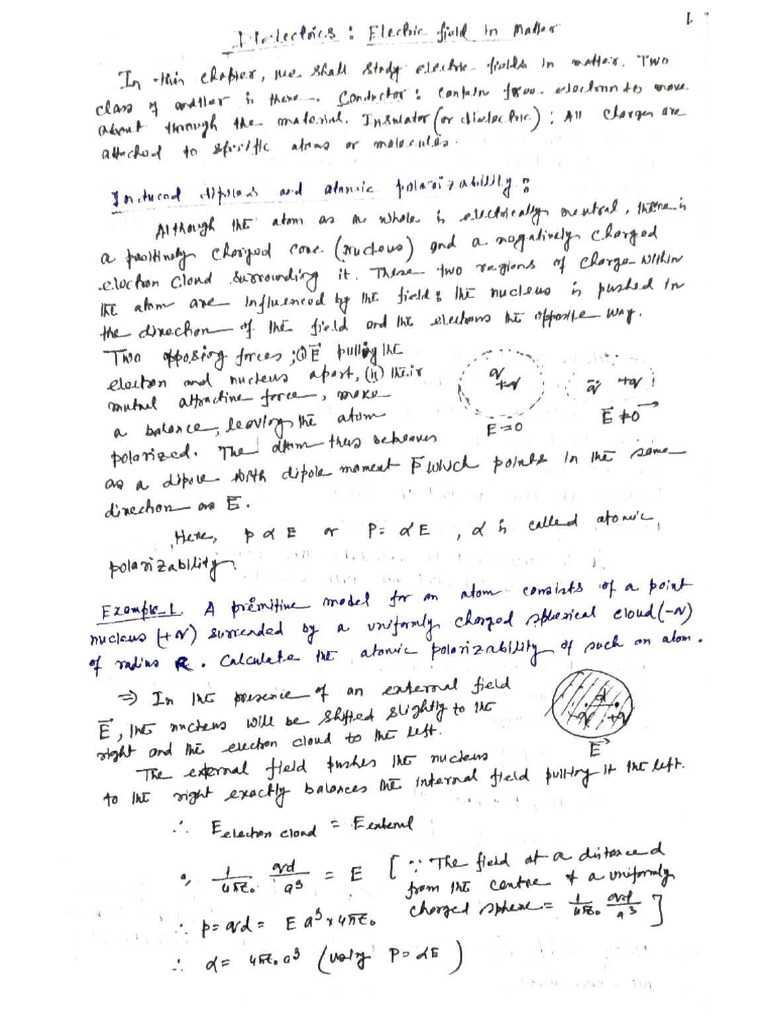 1
Dielectrics : Electric field in Matter
In this chapter, we shall study electric fields in matter. Two
class of matter is there. Conductor : contain free electron to move
about through the material. Insulator (or dielectric) : All charges are
attached to specific atoms or molecules.
Induced dipoles and atomic polarizability :
Although the atom as a whole is electrically neutral, there is
a positively charged core (nucleus) and a negatively charged
electron cloud surrounding it. These two regions of charge within
the atom are influenced by the field : the nucleus is pushed in
the direction of the field and the electrons the opposite way.
Two opposing forces ; (i) E⃗ pulling the
electron and nucleus apart, (ii) their
mutual attractive force, make
a balance, leaving the atom
polarized. The atom thus behaves
-q +q
-q +q
E=0
E⃗≠0
as a dipole with dipole moment P⃗ which points in the same
direction as E.
Here, p ∝ E or P = αE , α is called atomic
polarizability.
Example-1. A primitive model for an atom consists of a point
nucleus (+q) surrended by a uniformly charged spherical cloud (-q)
of radius R. Calculate the atomic polarizability of such an atom.
⇒ In the presence of an external field
E⃗, the nucleus will be shifted slightly to the
right and the electron cloud to the left.
d
-q +q
E⃗
The external field pushes the nucleus
to the right exactly balances the internal field pulling it the left.
∴ E electron cloud = E external
a, 1/4πε₀ qd/a³ = E [ ∵ The field at a distance d
from the centre of a uniformly
charged sphere = 1/4πε₀ qd/a³ ]
∴ p = qd = E a³ × 4πε₀
∴ α = 4πε₀ a³ (using P = αE)